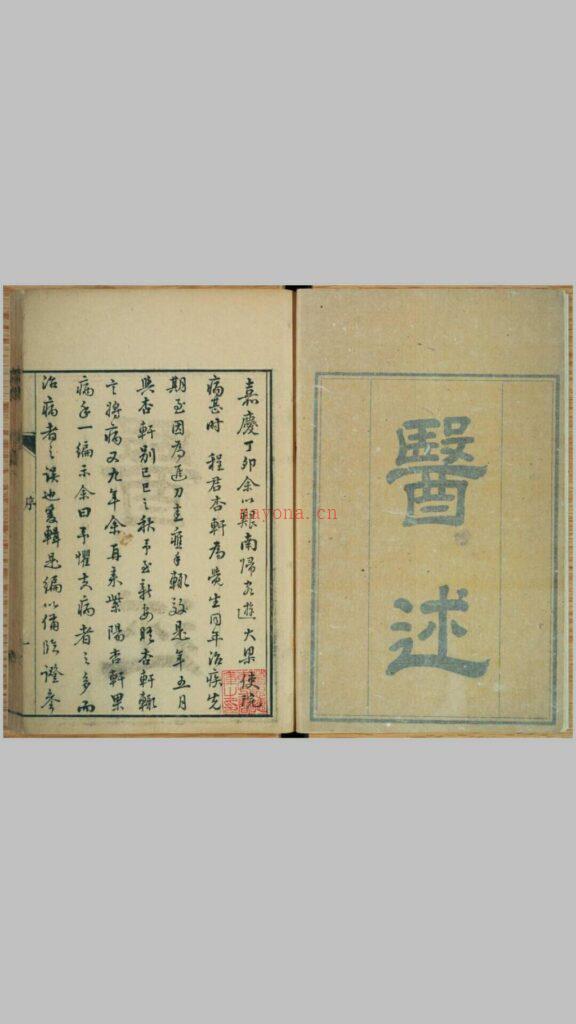 醫述
嘉慶丁卯余以艱南歸客遊大梁使院
病甚時程君杏軒為覺生同年治疾先
期至因為進刀圭應手輒效是年五月
與杏軒別己巳之秋予至新安晤杏軒輒
言將病又九年余再來紫陽杏軒果
病手一編示余曰予懼夫病者之多而
治病者之誤也爰輯是編以備臨證參
序
一
nayona.cn